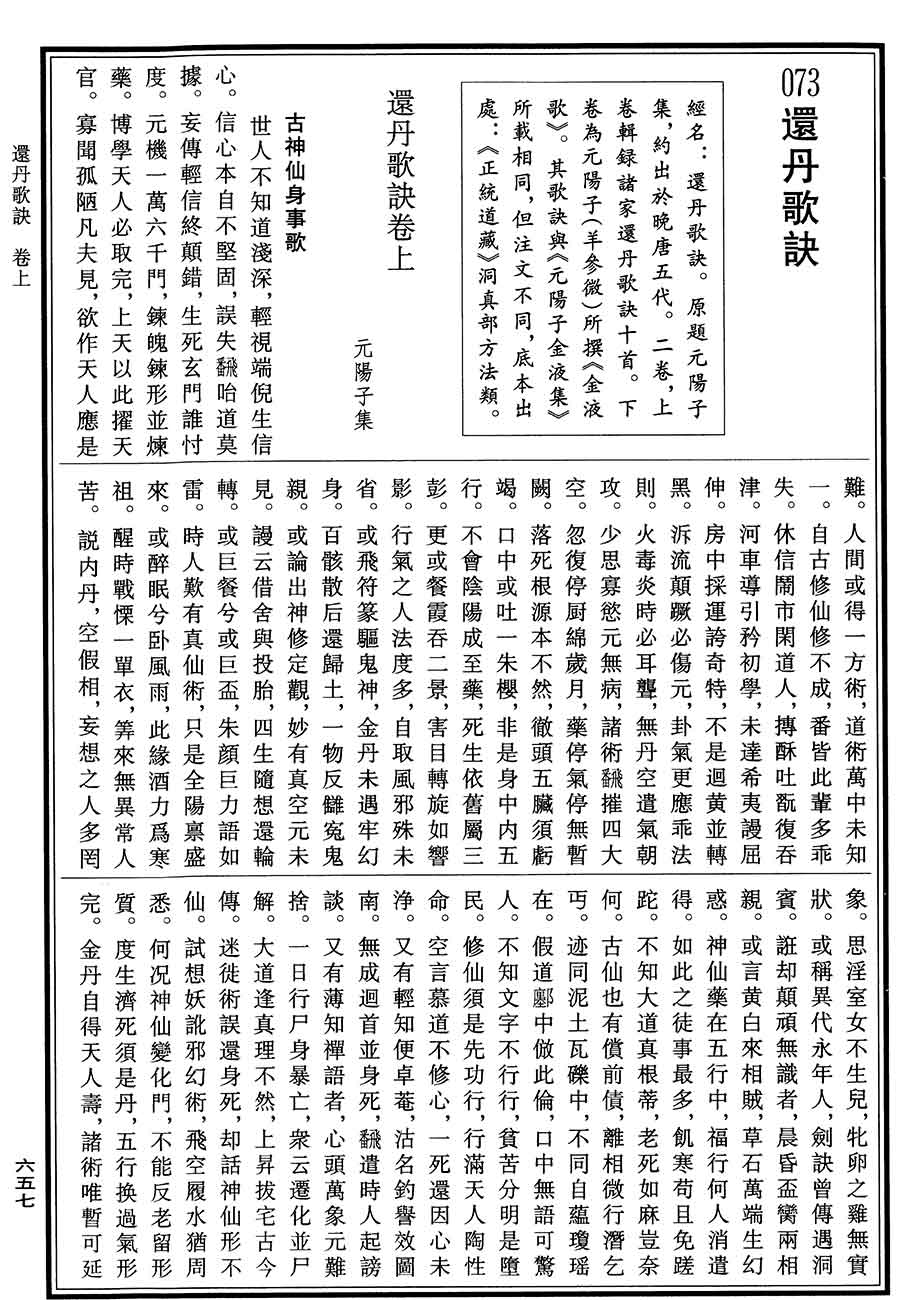 073還丹歌訣
經名：還丹歌訣。原題元陽子
集，約出於晚唐五代。二卷，上
卷輯録諸家還丹歌訣十首。下
卷為元陽子（羊參微）所撰《金液
歌》。其歌訣與《元陽子金液集》
所載相同，但注文不同，底本出
處：《正統道藏》洞真部方法類。
還丹歌訣卷上
元陽子集
古神仙身事歌
世人不知道淺深，輕視端倪生信
心。信心本自不堅固，誤失飜咍道莫
據。妄傳輕信終顛錯，生死玄門誰忖
度。元機一萬六千門，鍊魄鍊形並煉
藥。博學天人必取完，上天以此擢天
官。寡聞孤陋凡夫見，欲作天人應是
難。人間或得一方術，道術萬中未知
一。自古修仙修不成，番皆此輩多乖
失。休信鬧市閑道人，摶酥吐翫復吞
津。河車導引矜初學，未達希夷謾屈
伸。房中採運誇奇特，不是迴黄並轉
黑。泝流顛蹶必傷元，卦氣更應乖法
則。火毒炎時必耳聾，無丹空遣氣朝
攻。少思寡慾元無病，諸術飜摧四大
空。忽復停厨綿歲月，藥停氣停無暫
闕。落死根源本不然，徹頭五臟須虧
竭。口中或吐一朱櫻，非是身中内五
行。不會陰陽成至藥，死生依舊屬三
彭。更或餐霞吞二景，害目轉旋如響
影。行氣之人法度多，自取風邪殊未
省。或飛符篆驅鬼神，金丹未遇牢幻
身。百骸散后還歸土，一物反讎寃鬼
親。或論出神修定觀，妙有真空元未
見。謾云借舍與投胎，四生隨想還輪
轉。或巨餐兮或巨盃，朱顔巨力語如
雷。時人歎有真仙術，只是全陽禀盛
來。或醉眠兮卧風雨，此緣酒力爲寒
祖。醒時戰慄一單衣，筭來無異常人
苦。説内丹，空假相，妄想之人多罔
象。思淫室女不生兒，牝卵之雞無實
狀。或稱異代永年人，劍訣曾傳遇洞
賓。誑却顛頑無識者，晨昏盃臠兩相
親。或言黄白來相賊，草石萬端生幻
惑。神仙藥在五行中，福行何人消遣
得。如此之徒事最多，飢寒苟且免蹉
跎。不知大道真根蒂，老死如麻豈奈
何。古仙也有償前債，離相微行潛乞
丐。迹同泥土瓦礫中，不同自蘊瓊瑶
在。假道鄽中倣此倫，口中無語可驚
人。不知文字不行行，貧苦分明是墮
民。修仙須是先功行，行滿天人陶性
命。空言慕道不修心，一死還因心未
净。又有輕知便卓菴，沽名釣譽效圖
南。無成迴首並身死，飜遣時人起謗
談。又有薄知禪語者，心頭萬象元難
捨。一日行尸身暴亡，衆云遷化並尸
解。大道逢真理不然，上昇拔宅古今
傳。迷徙術誤還身死，却話神仙形不
仙。試想妖訛邪幻術，飛空履水猶周
悉。何况神仙變化門，不能反老留形
質。度生濟死須是丹，五行换過氣形
完。金丹自得天人壽，諸術唯暫可延
還丹歌訣　卷上
六五七